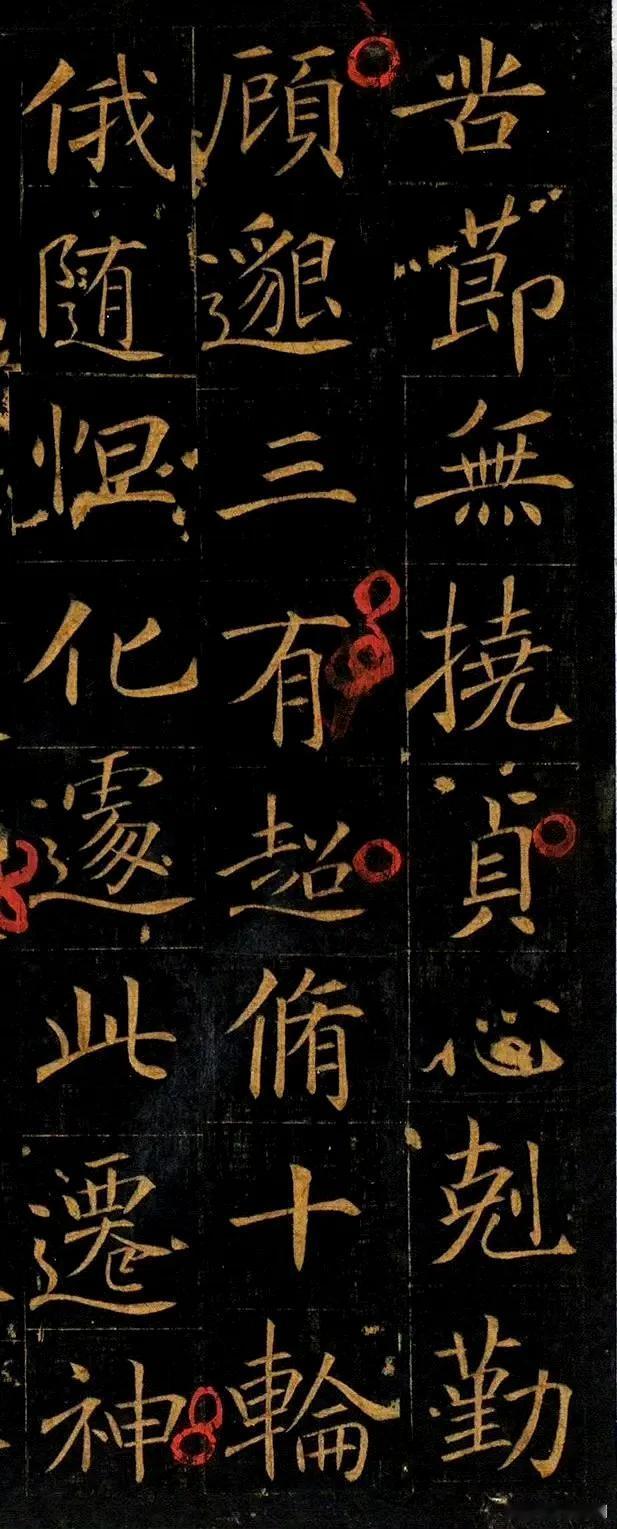 苦節無撓貞心剋勤
顧邈三有超脩十輪
俄随怛化遽此遷神